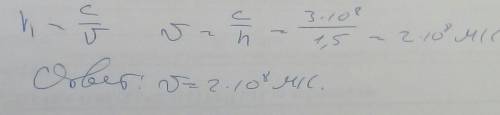 n = c/v v = c/n = 3·10⁸/1,5 = 2·10⁸ м/с
Ответ: v = 2·10⁸ м/с.